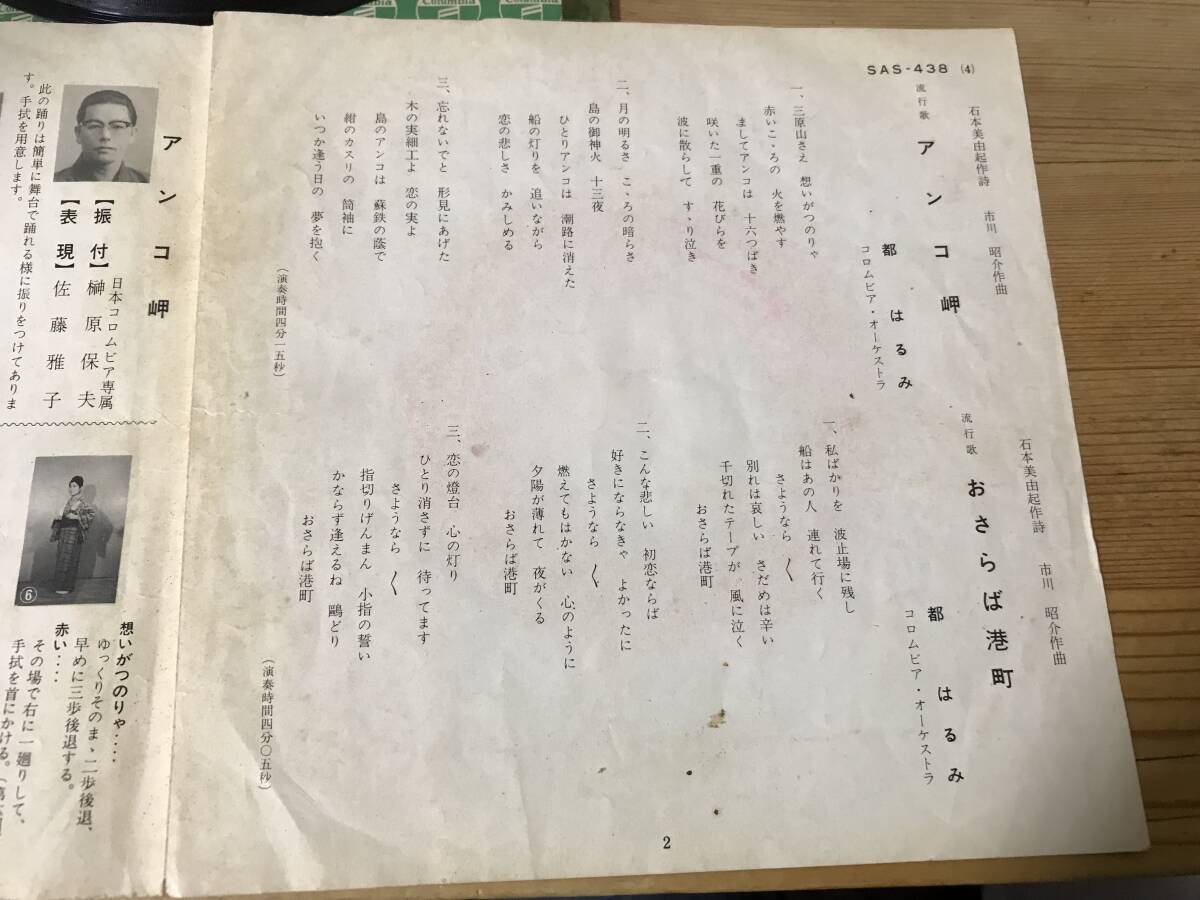 Columbia
SAS-438 (4)
石本美由起作詩　市川　昭介作曲
流行歌　アンコ岬
都　はるみ
コロムビア・オーケストラ
一、三原山さえ　想いがつのりゃ
赤いこゝろの　火を燃やす
ましてアンコは　十六つばき
咲いた一重の　花びらを
波に散らして　すゝり泣き
二、月の明るさ　こゝろの暗らさ
島の御神火　十三夜
ひとりアンコは　潮路に消えた
船の灯りを　追いながら
恋の悲しさ　かみしめる
三、忘れないでと　形見にあげた
木の実細工よ　恋の実よ
島のアンコは　蘇鉄の蔭で
紺のカスリの　筒袖に
いつか逢う日の　夢を抱く
（演奏時間四分一五秒）
石本美由起作詩　市川　昭介作曲
流行歌　おさらば港町
都　はるみ
コロムビア・オーケストラ
一、私ばかりを　波止場に残し
船はあの人　連れて行く
さようなら　〱
別れは哀しい　さだめは辛い
千切れたテープが　風に泣く
おさらば港町
二、こんな悲しい　初恋ならば
好きにならなきゃ　よかったに
さようなら　〱
燃えてもはかない　心のように
夕陽が薄れて　夜がくる
おさらば港町
三、恋の燈台　心の灯り
ひとり消さずに　待ってます
さようなら　〱
指切りげんまん　小指の誓い
かならず逢えるね　鷗どり
おさらば港町
（演奏時間四分〇五秒）
2
アンコ岬
日本コロムビア専属
【振付】榊原保夫
【表現】佐藤雅子
此の踊りは簡単に舞台で踊れる様に振りをつけてありま
す。手拭を用意します。
⑥
想いがつのりゃ‥‥
ゆっくりそのまゝ二歩後退、
早めに三歩後退する。
赤い‥‥
その場で右に一廻りして、
手拭を首にかける。